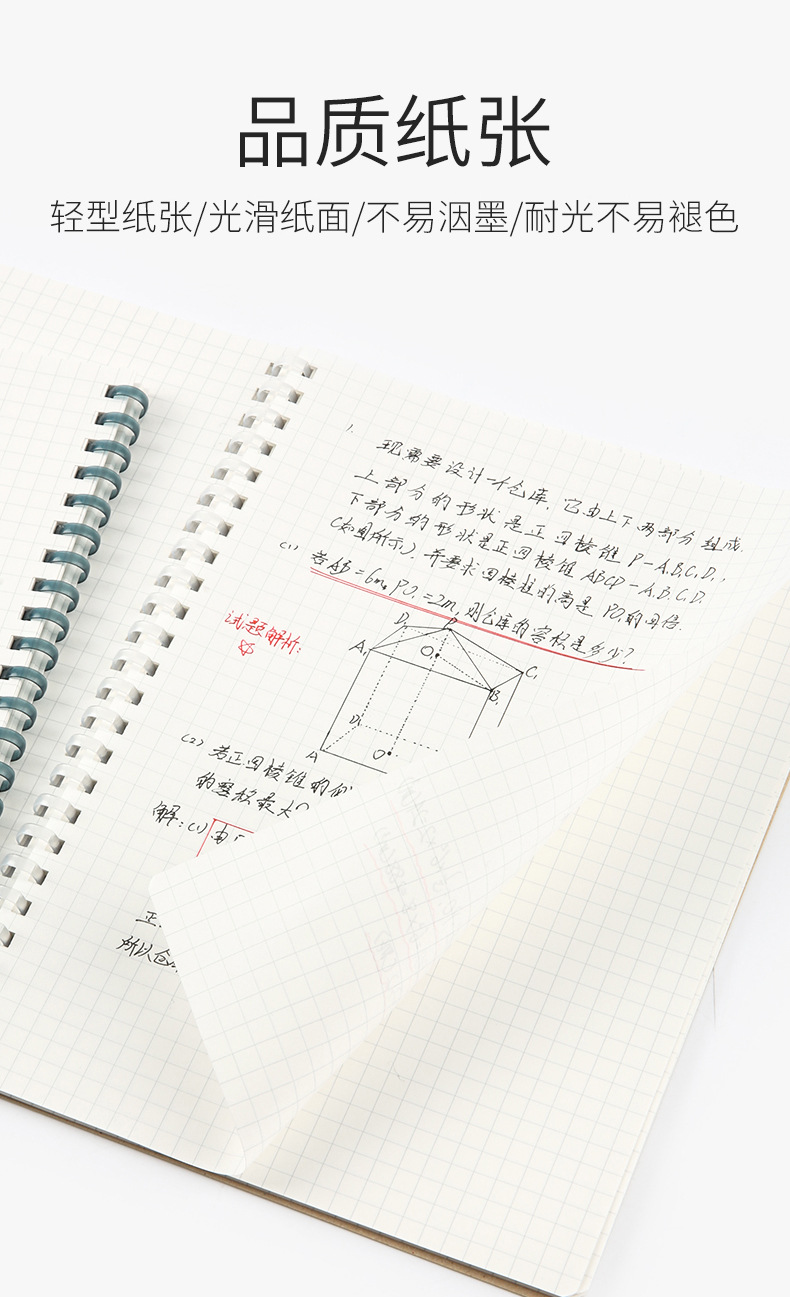 品质纸张
轻型纸张/光滑纸面/不易洇墨/耐光不易褪色
1. 现需要设计一个仓库,它由上下两部分组成,
上部分的形状是正四棱锥P-A₁B₁C₁D₁,
下部分的形状是正四棱锥ABCD-A₁B₁C₁D₁
(如图所示),并要求四棱柱的高是PO₁的四倍.
(1) 若AB=6m,PO₁=2m,则仓库的容积是多少?
试题解析:
D₁ P
A₁ O C₁
B₁
D₁
A O
(2) 若正四棱锥的
的容积最大
解:(1) 由
正
所以仓